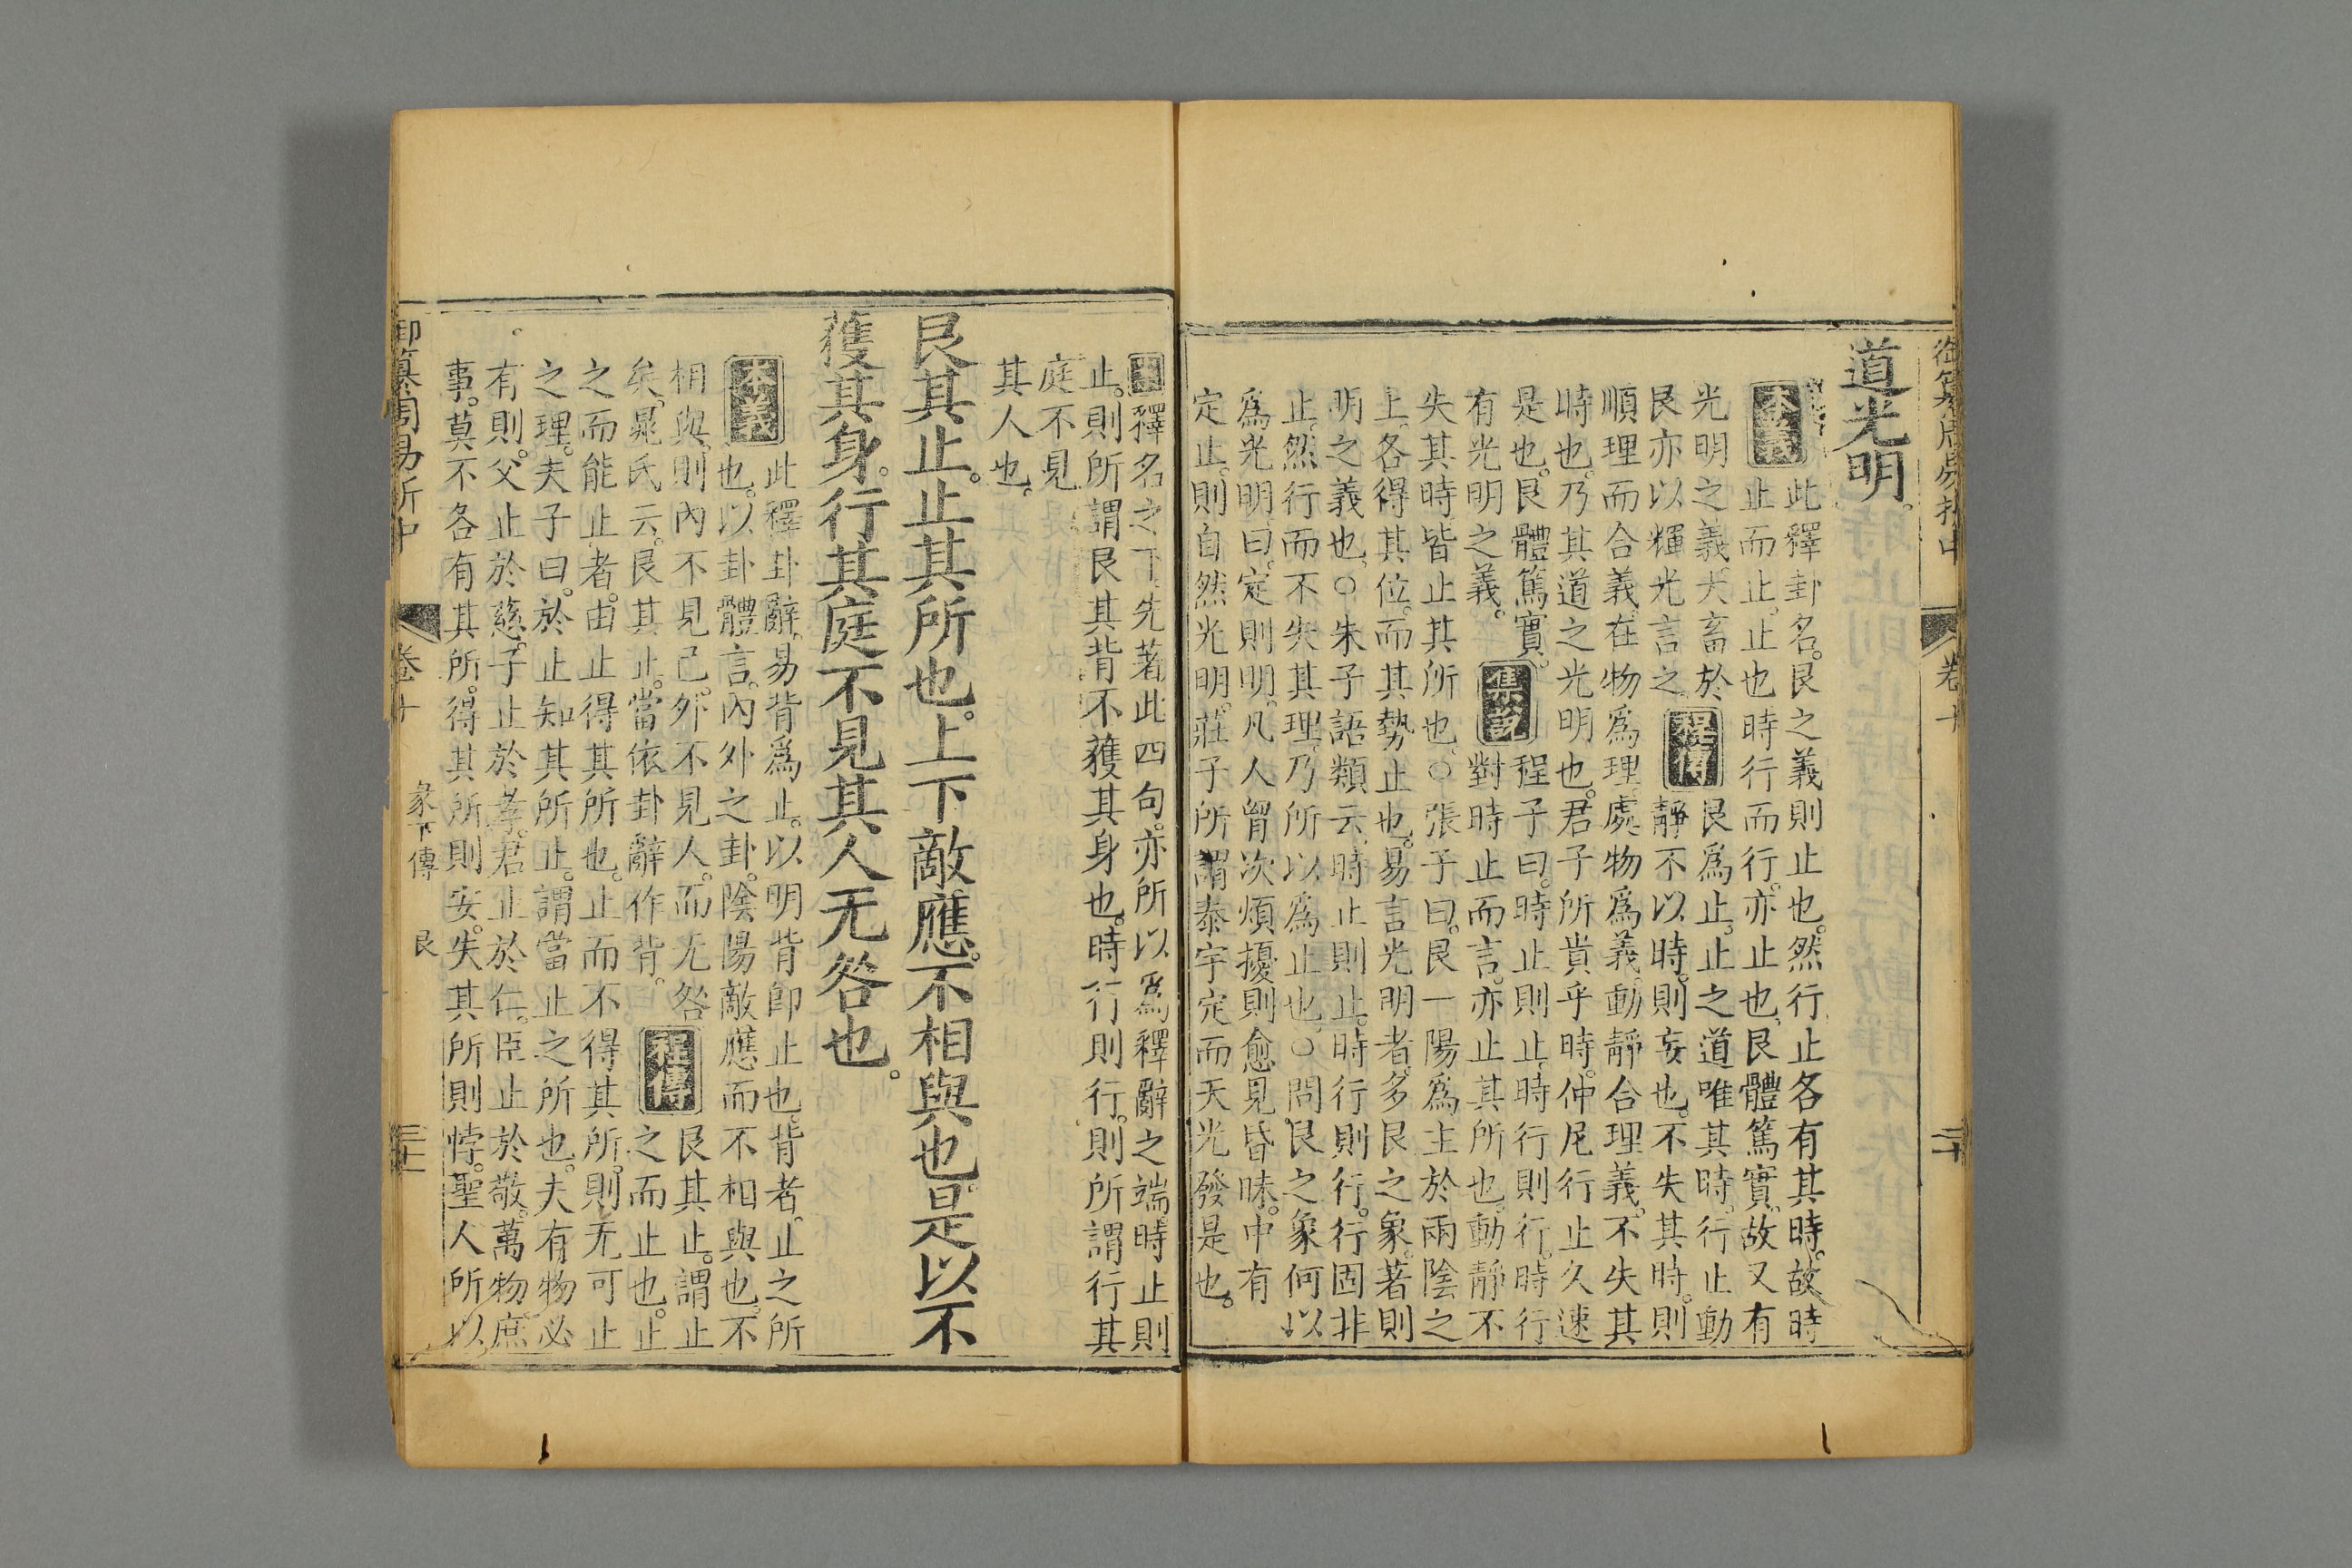 道光明。
本義
此釋卦名。艮之義則止也。然行止各有其時。故時
止而止。止也時行而行。亦止也。艮體篤實。故又有
光明之義。大畜於
艮亦以輝光言之。
程傳
艮爲止。止之道唯其時。行止動
靜不以時。則妄也。不失其時。則
順理而合義。在物爲理。處物爲義。動靜合理義。不失其
時也。乃其道之光明也。君子所貴乎時。仲尼行止久速
是也。艮體篤實。
有光明之義。
集說
程子曰。時止則止。時行則行。時行
對時止而言。亦止其所也。動靜不
失其時。皆止其所也。○張子曰。艮一陽爲主於兩陰之
上。各得其位。而其勢止也。易言光明者。多艮之象。著則
明之義也。○朱子語類云。時止則止。時行則行。行固非
止。然行而不失其理。乃所以爲止也。○問。艮之象何以
爲光明。曰。定則明。凡人胷次煩擾則愈見昏昧。中有
定止。則自然光明。莊子所謂泰宇定而天光發是也。
卷十
二十
釋名之下。先著此四句。亦所以爲釋辭之端。時止則
止。則所謂艮其背不獲其身也。時行則行。則所謂行其
庭不見
其人也。
艮其止。止其所也。上下敵應。不相與也。是以不
獲其身。行其庭不見其人无咎也。
本義
此釋卦辭。易背爲止。以明背卽止也。背者。止之所
也。以卦體言。內外之卦。陰陽敵應而不相與也。不
相與。則內不見己。外不見人。而无咎
矣。晁氏云。艮其止。當依卦辭作背。
程傳
艮其止。謂止
之而止也。止
之而能止者。由止得其所也。止而不得其所。則无可止
之理。夫子曰。於止知其所止。謂當止之所也。夫有物必
有則。父止於慈。子止於孝。君止於仁。臣止於敬。萬物庶
事。莫不各有其所。得其所則安。失其所則悖。聖人所以
御纂周易折中
卷十
彖下傳
艮